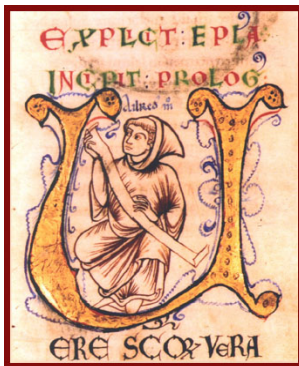 EXPLICIT: EPLA
INCIPIT: PROLOG
U
ERE SCOR VERA